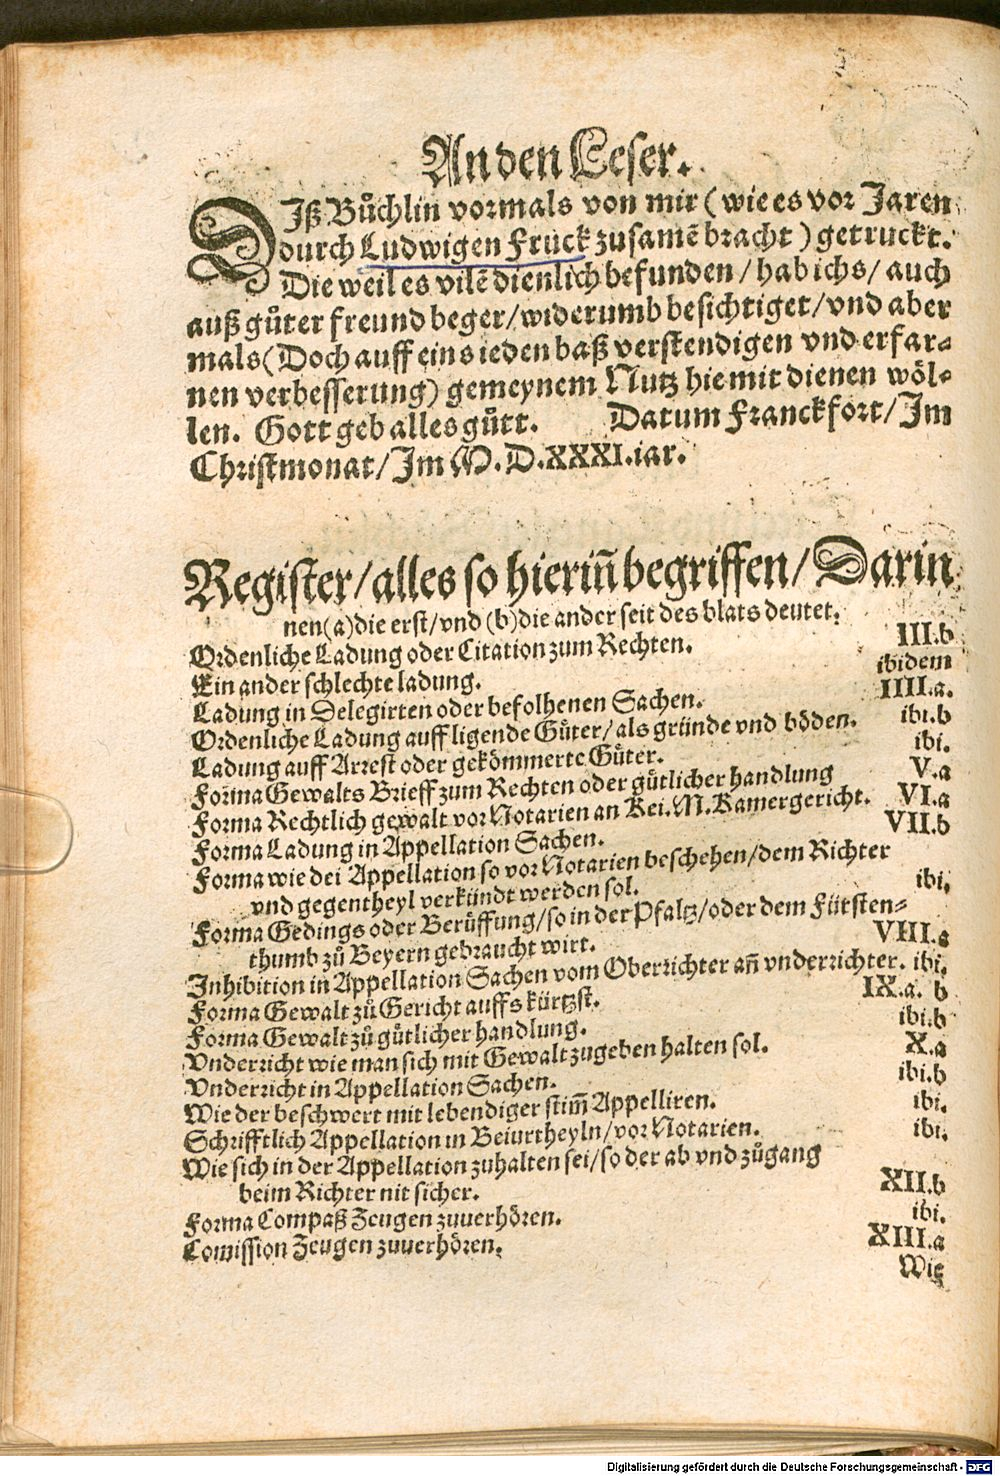 An den Leser.
DIß Bůchlin vormals von mir ( wie es vor Jaren
durch Ludwigen Fruck zusamē bracht ) getruckt.
Die weil es vilē dienlich befunden / hab ichs / auch
auß gůter freund beger / widerumb besichtiget / vnd aber
mals ( Doch auff eins ieden baß verstendigen vnd erfar⸗
nen verbesserung ) gemeynem Nutz hie mit dienen wöl⸗
len. Gott geb alles gůtt. Datum Franckfort / Im
Christmonat / Im M. D. XXXI. iar.
Register / alles so hierin̄ begriffen / Darin
nen (a) die erst / vnd (b) die ander seit des blats deutet.
Ordenliche Ladung oder Citation zum Rechten. III.b
Ein ander schlechte ladung. ibidem
Ladung in Delegirten oder befolhenen Sachen. IIII.a.
Ordenliche Ladung auff ligende Gůter / als gründe vnd böden. ibi.b
Ladung auff Arrest oder gekömmerte Gůter. ibi.
Forma Gewalts Brieff zum Rechten oder gůtlicher handlung V.a
Forma Rechtlich gewalt vor Notarien an Kei. M. Kamergericht. VI.a
Forma Ladung in Appellation Sachen. VII.b
Forma wie dei Appellation so vor Notarien beschehen / dem Richter
vnd gegentheyl verkündt werden sol. ibi.
Forma Gedings oder Berůffung / so in der Pfaltz / oder dem Fürsten⸗
thumb zů Beyern gebraucht wirt. VIII.a
Inhibition in Appellation Sachen vom Oberrichter an̄ vnderrichter. ibi.
Forma Gewalt zů Gericht auffs kürtzst. IX.a. b
Forma Gewalt zů gůtlicher handlung. ibi.b
Vnderricht wie man sich mit Gewalt zugeben halten sol. X.a
Vnderricht in Appellation Sachen. ibi.b
Wie der beschwert mit lebendiger stim̄ Appelliren. ibi.
Schrifftlich Appellation in Beiurtheyln / vor Notarien. ibi.
Wie sich in der Appellation zuhalten sei / so der ab vnd zůgang
beim Richter nit sicher. XII.b
Forma Compaß Zeugen zuuerhören. ibi.
Comission Zeugen zuuerhören. XIII.a
Wie
Digitalisierung gefördert durch die Deutsche Forschungsgemeinschaft - DFG